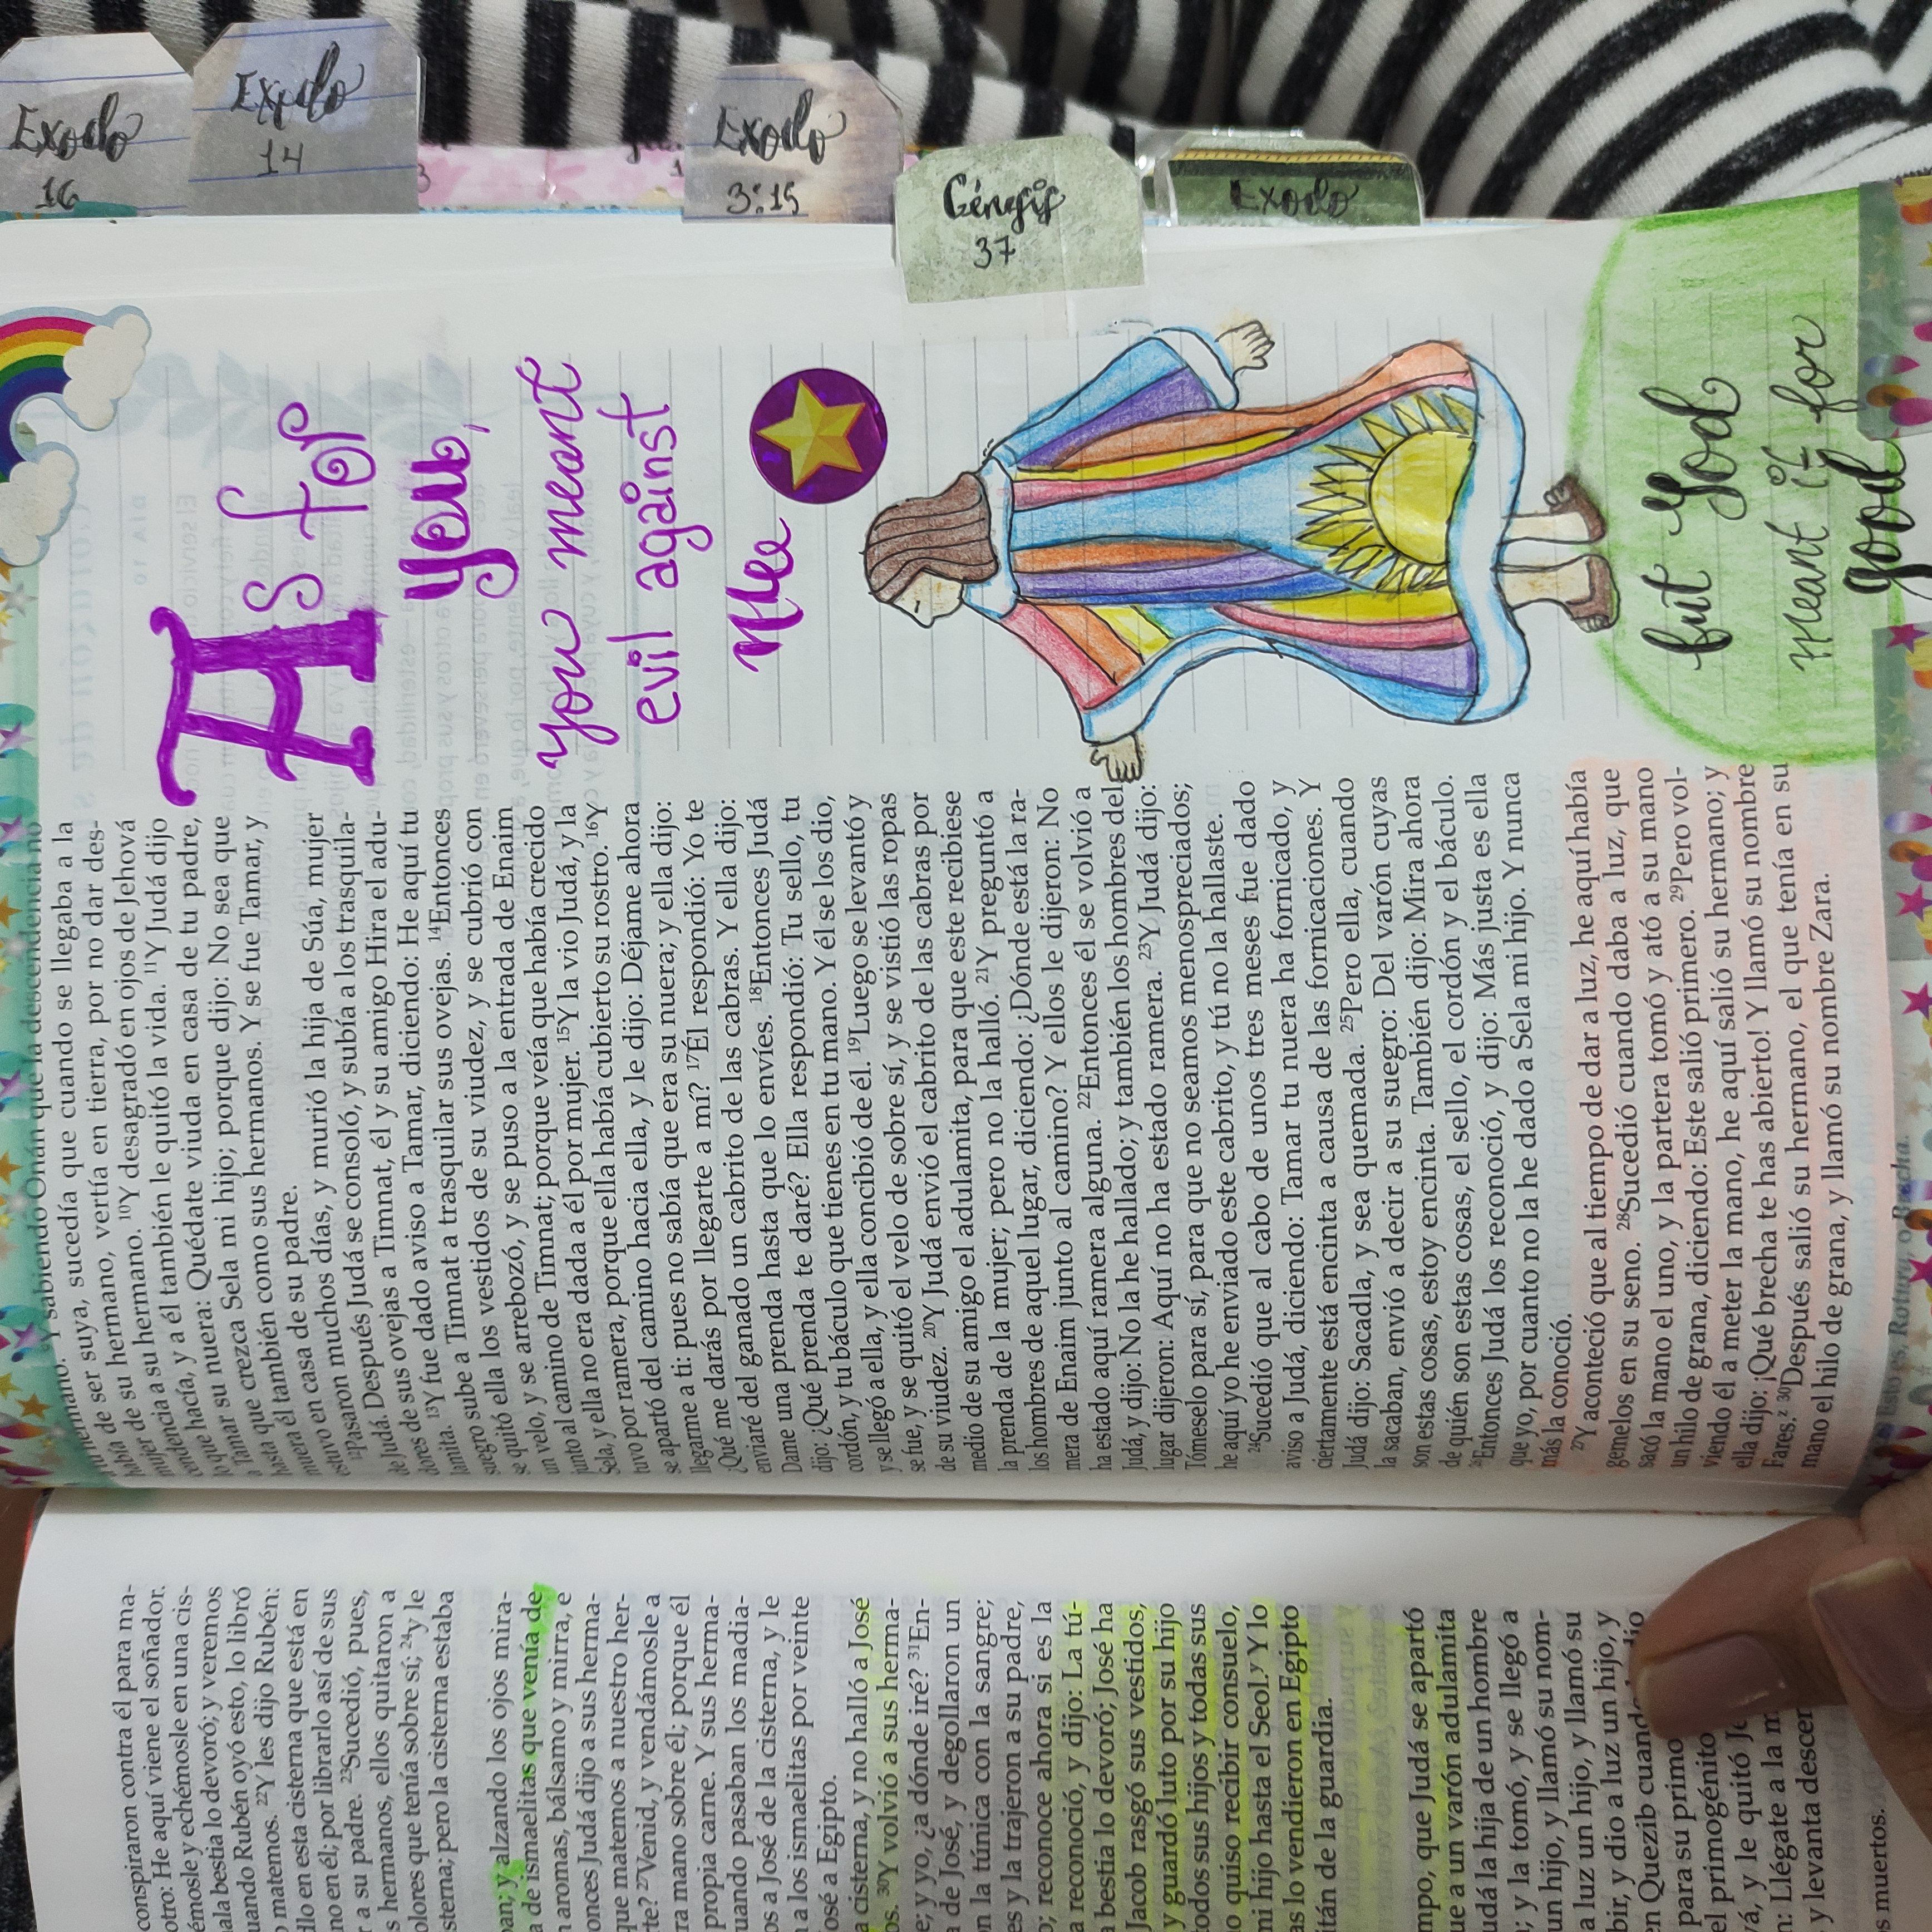 conspiraron contra él para ma-
otro: He aquí viene el soñador.
émosle y echémosle en una cis-
ala bestia lo devoró; y veremos
uando Rubén oyó esto, lo libró
o matemos. 22Y les dijo Rubén:
dlo en esta cisterna que está en
no en él; por librarlo así de sus
r a su padre. 23Sucedió, pues,
s hermanos, ellos quitaron a
olores que tenía sobre sí; 24y le
sterna; pero la cisterna estaba
pan; y alzando los ojos mira-
a de ismaelitas que venía de
n aromas, bálsamo y mirra, e
onces Judá dijo a sus herma-
que matemos a nuestro her-
rte? 27Venid, y vendámosle a
ra mano sobre él; porque él
propia carne. Y sus herma-
uando pasaban los madia-
os a José de la cisterna, y le
a los ismaelitas por veinte
José a Egipto.
a cisterna, y no halló a José
os. 30Y volvió a sus herma-
e; y yo, ¿a dónde iré? 31En-
a de José, y degollaron un
on la túnica con la sangre;
es y la trajeron a su padre,
o; reconoce ahora si es la
a reconoció, y dijo: La tú-
a bestia lo devoró; José ha
Jacob rasgó sus vestidos,
y guardó luto por su hijo
todos sus hijos y todas sus
o quiso recibir consuelo,
mi hijo hasta el Seol.y Y lo
as lo vendieron en Egipto
itán de la guardia.
mpo, que Judá se apartó
ue a un varón adulamita
udá la hija de un hombre
; y la tomó, y se llegó a
un hijo, y llamó su nom-
a luz un hijo, y llamó su
bir, y dio a luz un hijo, y
en Quezib
para su primo
l primogénito
á, y le quitó
n: Llégate a la
y levanta
s muertos.
tu hermano. 9Y sabiendo Onán que la descendencia no
había de ser suya, sucedía que cuando se llegaba a la
mujer de su hermano, vertía en tierra, por no dar des-
cendencia a su hermano. 10Y desagradó en ojos de Jehová
lo que hacía, y a él también le quitó la vida. 11Y Judá dijo
a Tamar su nuera: Quédate viuda en casa de tu padre,
hasta que crezca Sela mi hijo; porque dijo: No sea que
muera él también como sus hermanos. Y se fue Tamar, y
estuvo en casa de su padre.
12Pasaron muchos días, y murió la hija de Súa, mujer
de Judá. Después Judá se consoló, y subía a los trasquila-
dores de sus ovejas a Timnat, él y su amigo Hira el adu-
lamita. 13Y fue dado aviso a Tamar, diciendo: He aquí tu
suegro sube a Timnat a trasquilar sus ovejas. 14Entonces
se quitó ella los vestidos de su viudez, y se cubrió con
un velo, y se arrebozó, y se puso a la entrada de Enaim
junto al camino de Timnat; porque veía que había crecido
Sela, y ella no era dada a él por mujer. 15Y la vio Judá, y la
tuvo por ramera, porque ella había cubierto su rostro. 16Y
se apartó del camino hacia ella, y le dijo: Déjame ahora
llegarme a ti: pues no sabía que era su nuera; y ella dijo:
¿Qué me darás por llegarte a mí? 17Él respondió: Yo te
enviaré del ganado un cabrito de las cabras. Y ella dijo:
Dame una prenda hasta que lo envíes. 18Entonces Judá
dijo: ¿Qué prenda te daré? Ella respondió: Tu sello, tu
cordón, y tu báculo que tienes en tu mano. Y él se los dio,
y se llegó a ella, y ella concibió de él. 19Luego se levantó y
se fue, y se quitó el velo de sobre sí, y se vistió las ropas
de su viudez. 20Y Judá envió el cabrito de las cabras por
medio de su amigo el adulamita, para que este recibiese
la prenda de la mujer; pero no la halló. 21Y preguntó a
los hombres de aquel lugar, diciendo: ¿Dónde está la ra-
mera de Enaim junto al camino? Y ellos le dijeron: No
ha estado aquí ramera alguna. 22Entonces él se volvió a
Judá, y dijo: No la he hallado; y también los hombres del
lugar dijeron: Aquí no ha estado ramera. 23Y Judá dijo:
Tómeselo para sí, para que no seamos menospreciados;
he aquí yo he enviado este cabrito, y tú no la hallaste.
24Sucedió que al cabo de unos tres meses fue dado
aviso a Judá, diciendo: Tamar tu nuera ha fornicado, y
ciertamente está encinta a causa de las fornicaciones. Y
Judá dijo: Sacadla, y sea quemada. 25Pero ella, cuando
la sacaban, envió a decir a su suegro: Del varón cuyas
son estas cosas, estoy encinta. También dijo: Mira ahora
de quién son estas cosas, el sello, el cordón y el báculo.
26Entonces Judá los reconoció, y dijo: Más justa es ella
que yo, por cuanto no la he dado a Sela mi hijo. Y nunca
más la conoció.
27Y aconteció que al tiempo de dar a luz, he aquí había
gemelos en su seno. 28Sucedió cuando daba a luz, que
sacó la mano el uno, y la partera tomó y ató a su mano
un hilo de grana, diciendo: Este salió primero. 29Pero vol-
viendo él a meter la mano, he aquí salió su hermano; y
ella dijo: ¡Qué brecha te has abierto! Y llamó su nombre
Fares.z 30Después salió su hermano, el que tenía en su
mano el hilo de grana, y llamó su nombre Zara.
z Esto es, Rotura, o Brecha.
As for
you,
you meant
evil against
me
but God
meant it for
good
Exodo
16
Exodo
14
Exodo
3:15
Génesis
37
Exodo